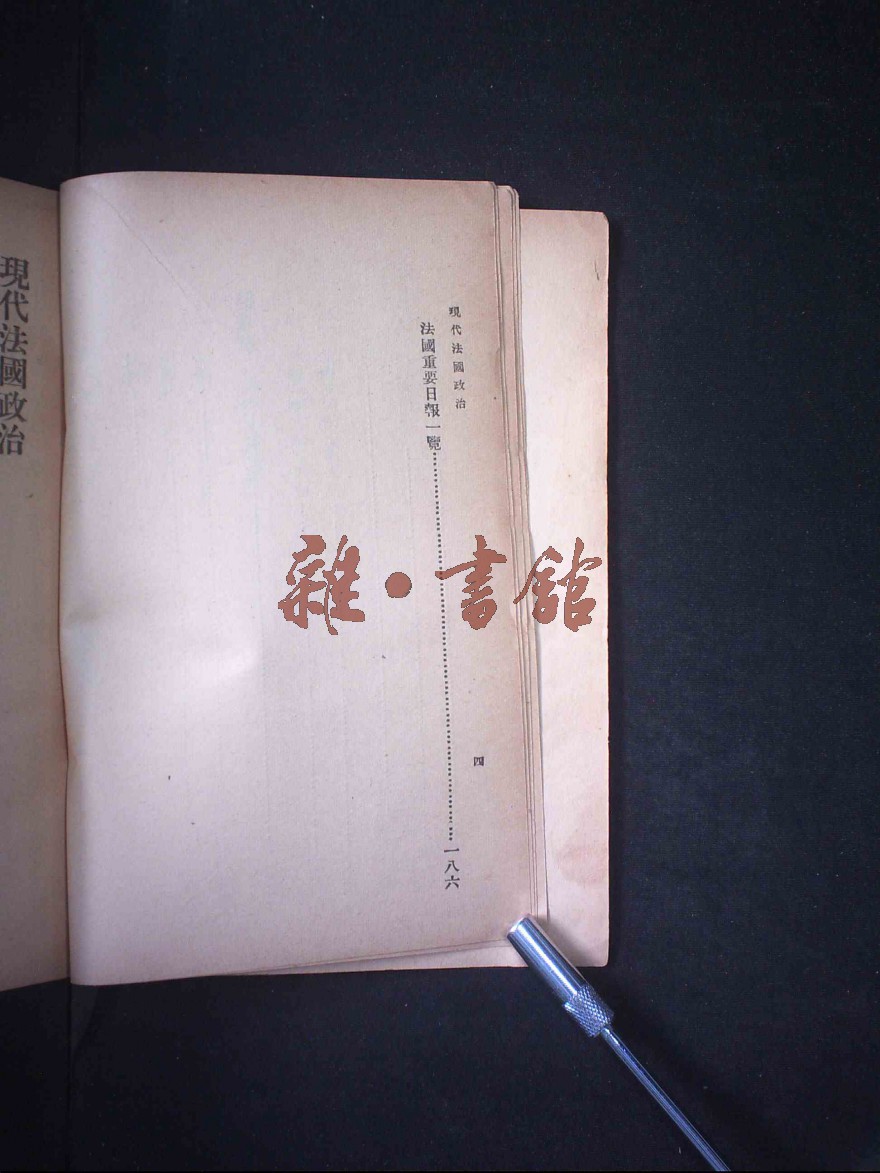 現代法國政治
四
法國重要日報一覽……一八六
現代法國政治
雜·書館